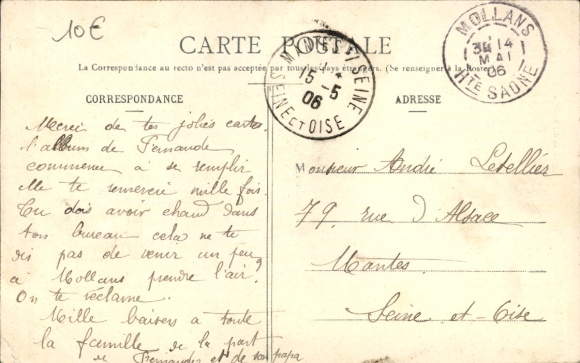 10€
CARTE POSTALE
La Correspondance au recto n'est pas acceptée par tous les pays étrangers. (Se renseigner à la Poste)
MANTES S/ SEINE
15-5
06
SEINE ET OISE
MOLLANS
14
MAI
06
Hte SAONE
CORRESPONDANCE
Merci de tes jolies cartes.
l'album de Fernande
commence à se remplir
Elle te remercie mille fois.
Tu dois avoir chaud dans
ton bureau cela ne te
dis pas de venir un peu
à Mollans prendre l'air?
On te réclame.
Mille baisers a toute
la famille de la part
de Fernande et de son papa
ADRESSE
Monsieur André Letellier
79, rue d'Alsace
Mantes.
Seine-et-Oise